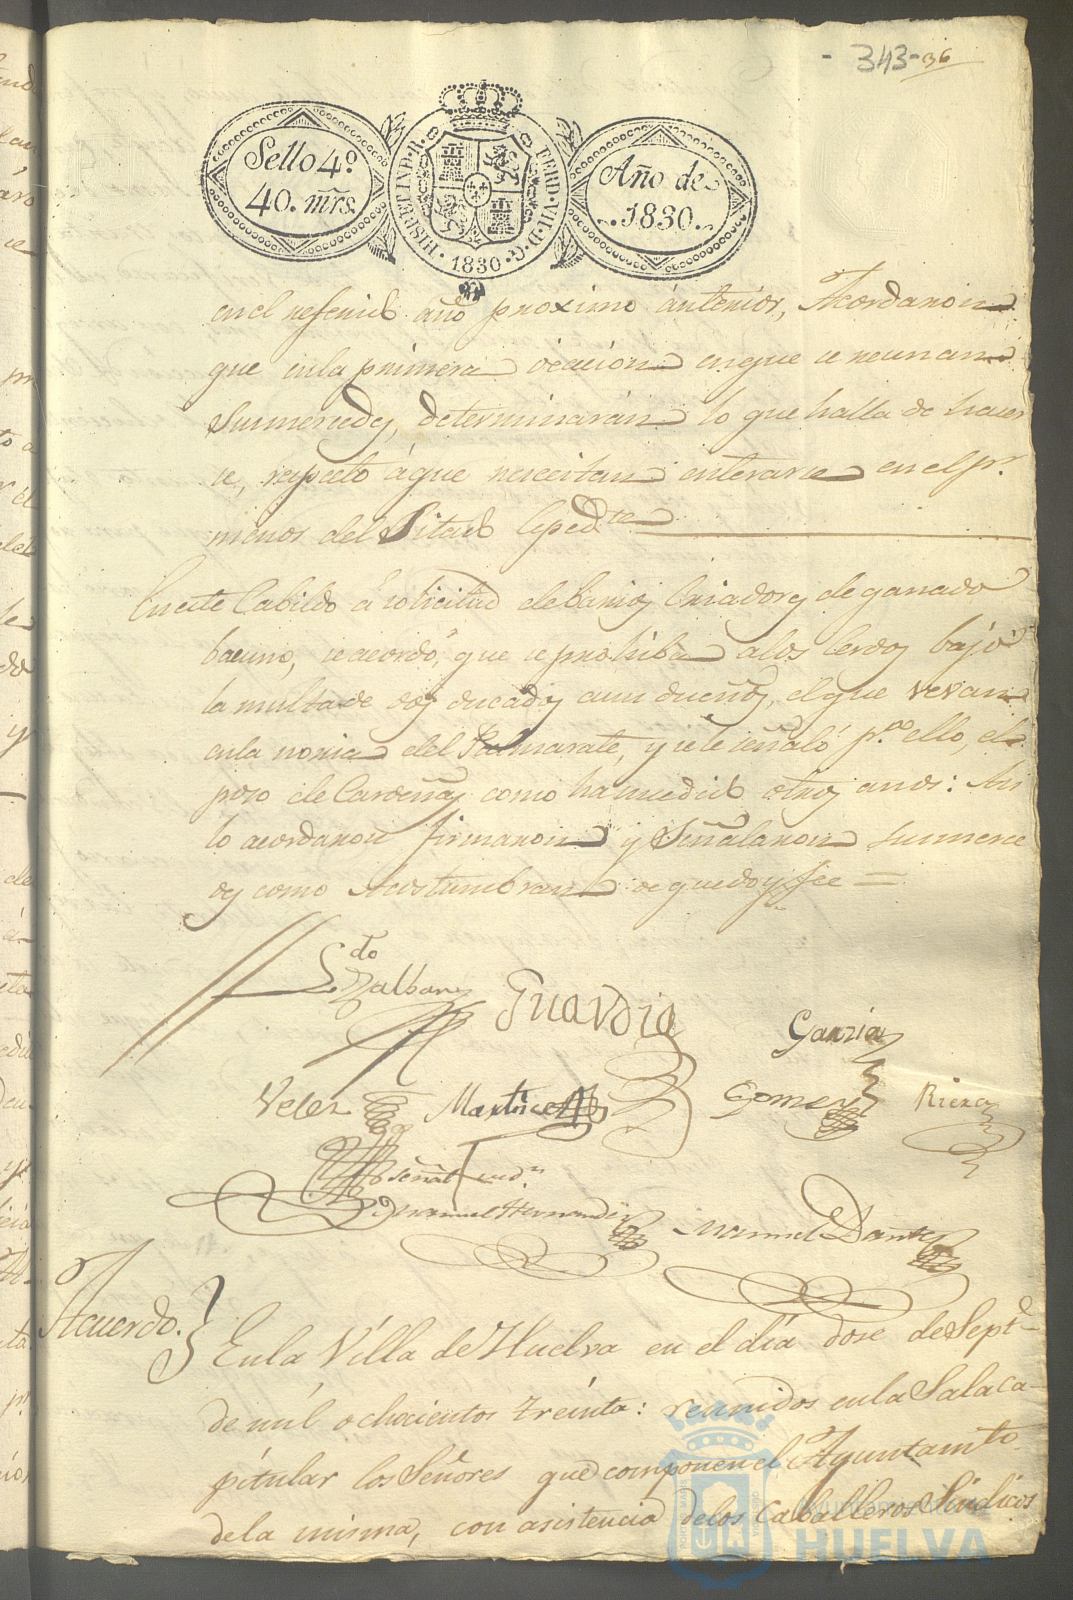 - 343 - 36
Sello 4º
40. mrs.
HISP. ET IND. R.
FERD. VII. D. G.
1830
Año de
1830.
en el referido año proximo ánterior, Acordaron
que en la primera ocacion en que se reunan
Sus mercedes, determinarán lo que halla de hacer
se, respecto á que necesitan enterarse en el
del Citado Espedte
En este Cabildo á solicitud de barios Criadores de ganado
bacuno, se acordó, que se prohiba a los Cerdos bajó
la multa de dos ducados a su dueño, el que vevan
en la noria del , y se le señaló pª ello, el
poso de Cardeñas como ha sucedido otros anos: Asi
lo acordaron firmaron y Señalaron sus merce
des como Acostumbran de que doy fee =
Ldo
Zalbany
Guardia
Garzia
Velez
Martinez
Gomez
Riera
Señal
Manuel Hernandez
Manuel Dante
Acuerdo. } En la Villa de Huelva en el día dose de Septe
de míl ochocientos treínta: reunidos en la Sala ca-
pitular los Señores que componen el Ayuntamto
de la misma, con asistencia de los Caballeros Síndicos
Ayuntamiento de
HUELVA